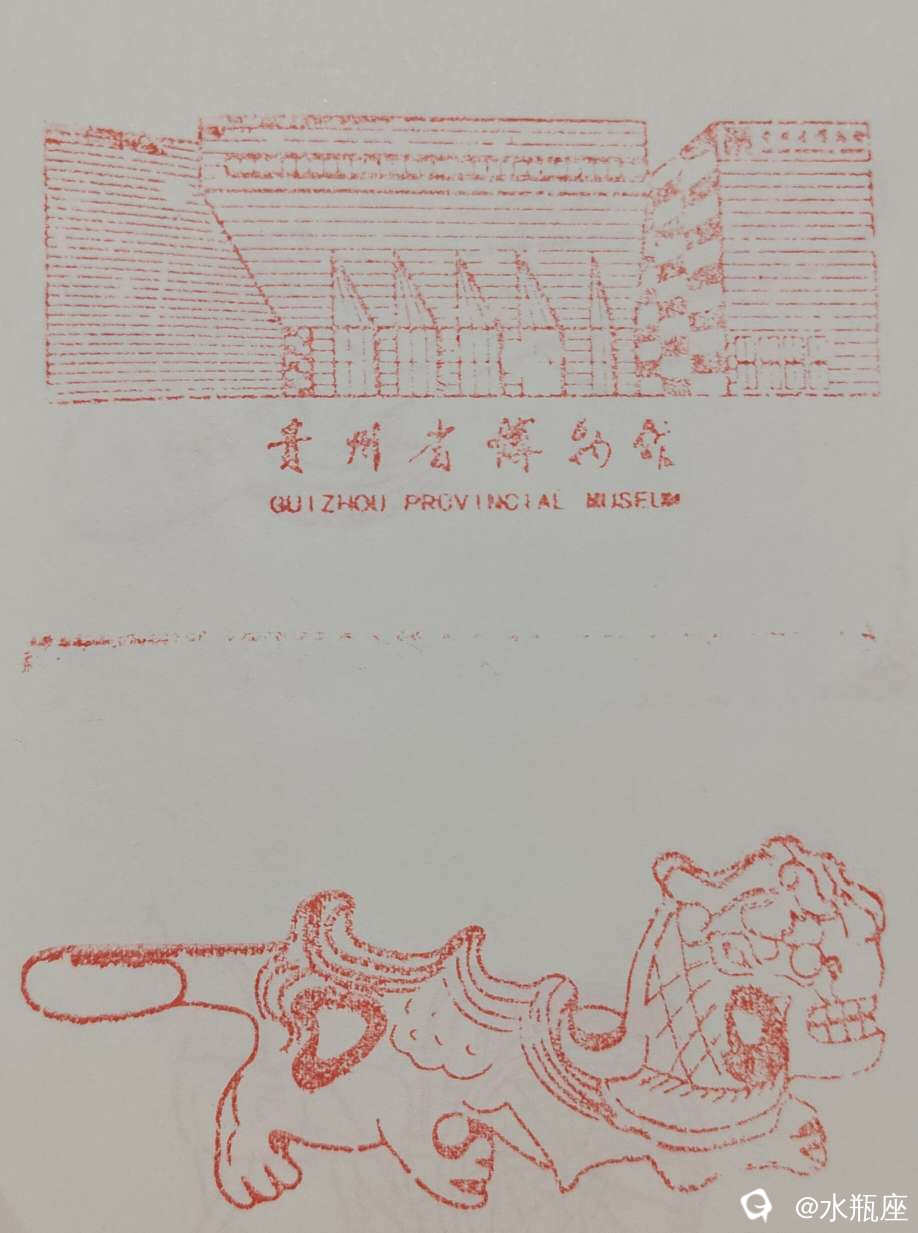 贵州省博物馆
GUIZHOU PROVINCIAL MUSEUM
@水瓶座